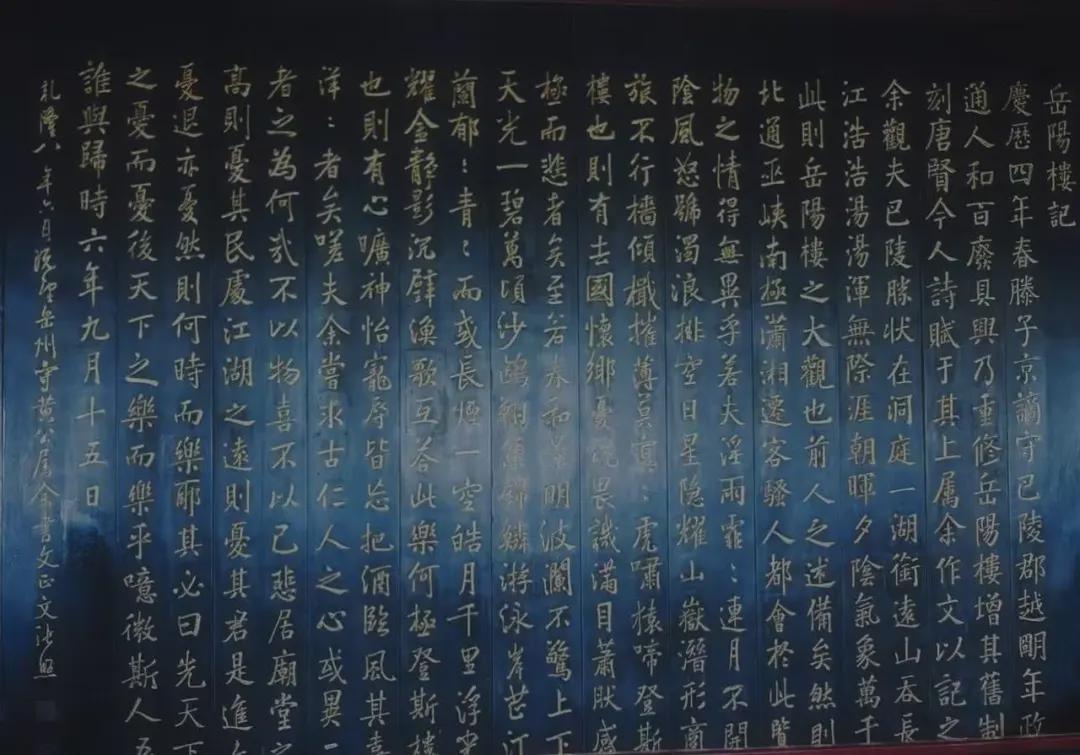 岳陽樓記
慶歷四年春滕子京謫守巴陵郡越明年政
通人和百廢具興乃重修岳陽樓增其舊制
刻唐賢今人詩賦于其上属余作文以記之
余觀夫巴陵勝状在洞庭一湖銜遠山吞長
江浩浩湯湯渾無際涯朝暉夕陰氣象萬千
此則岳陽樓之大觀也前人之述備矣然則
北通巫峽南極瀟湘遷客騷人都會於此覽
物之情得無異乎若夫淫雨霏：連月不開
陰風怒號濁浪排空日星隐耀山嶽潛形商
旅不行檣傾檝摧薄莫冥：虎嘯猿啼登斯
樓也則有去國懷鄉憂讒畏譏滿目蕭肰感
極而悲者矣至若春和景明波瀾不驚上下
天光一碧萬頃沙鷗翔集錦鱗游泳岸芷汀
蘭郁：青：而或長煙一空皓月千里浮光
耀金静影沉璧漁歌互答此樂何極登斯樓
也則有心曠神怡寵辱皆忘把酒臨風其喜
洋：者矣嗟夫余嘗求古仁人之心或異二
者之為何哉不以物喜不以己悲居廟堂之
高則憂其民處江湖之遠則憂其君是進亦
憂退亦憂然則何時而樂耶其必曰先天下
之憂而憂後天下之樂而樂乎噫微斯人吾
誰與歸時六年九月十五日
乾隆八年六月 岳州守黄公屬余書文正文 照